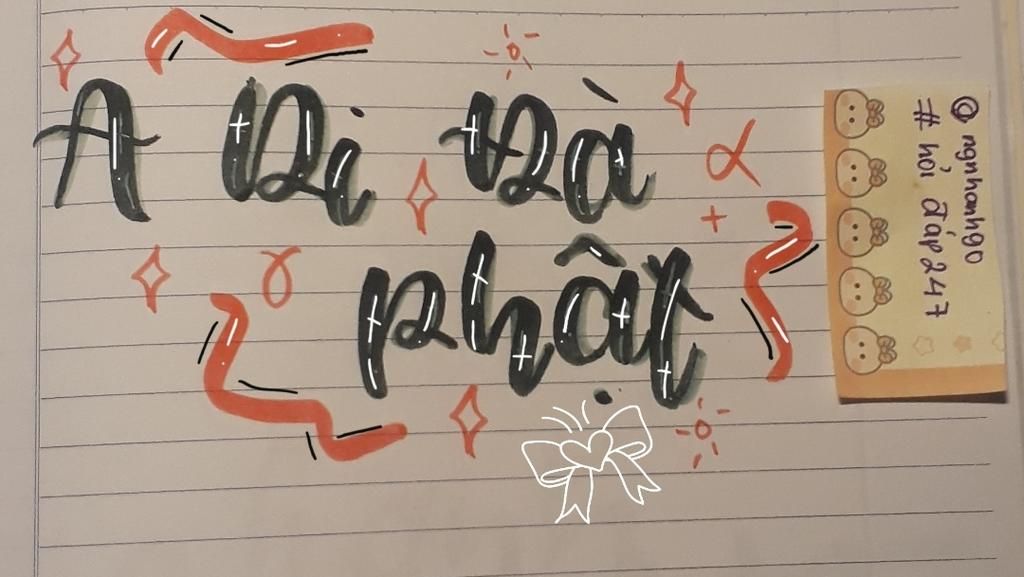 A Di Đà
phật
@ngnhanh90
# hỏi đáp247